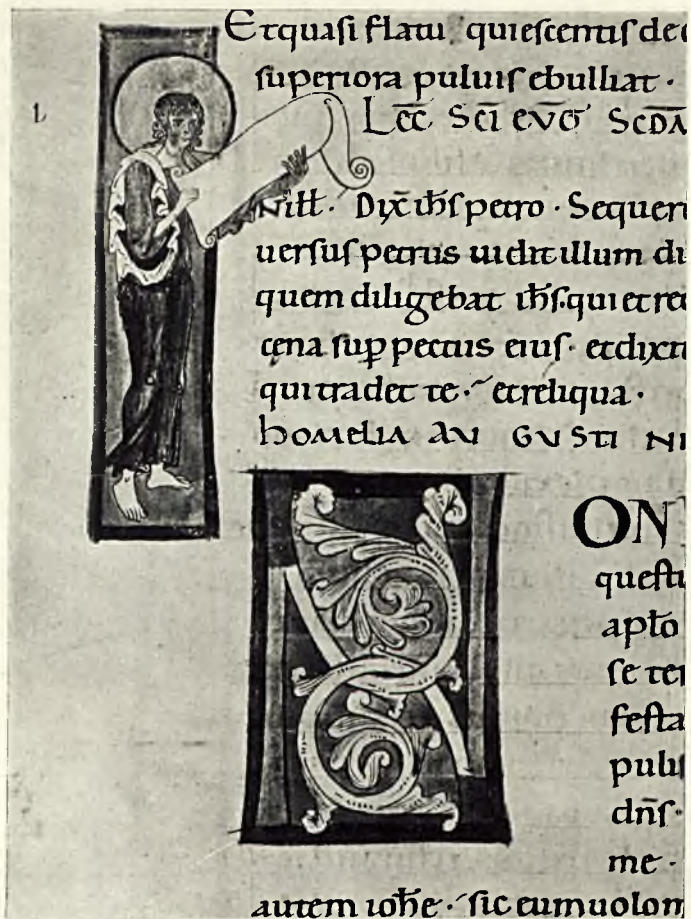 Et quasi flatu quiescentis de
superiora puluis ebulliat ·
Lec̄c̄ Scī evḡ Scd̄A
Nill · Dix̄ ih̄s petro · Sequer
uersus petrus uidit illum di
quem diligebat ih̄s · qui et re
cena sup pectus eius · et dixit
qui tradet te · et reliqua ·
homelia AV GVSTI NI
L
N
ON
questi
apto
se ter
festa
pulu
dn̄s ·
me ·
autem ioh̄e · sic eum uolo m